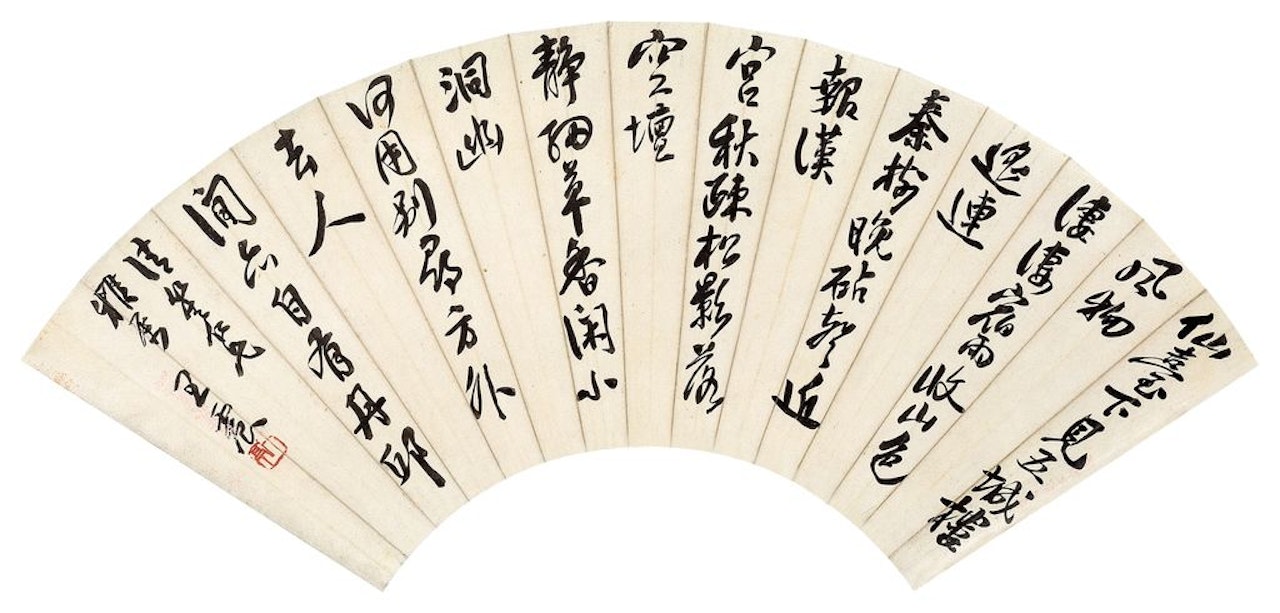 仙臺下見五城樓
風物
淒淒宿雨收山色
遙連
秦樹晚砧聲近
報漢
宮秋疎松影落
空壇
靜細草香閑小
洞幽
何用別尋方外
去人
間亦自有丹邱
仁兄
雅屬 王